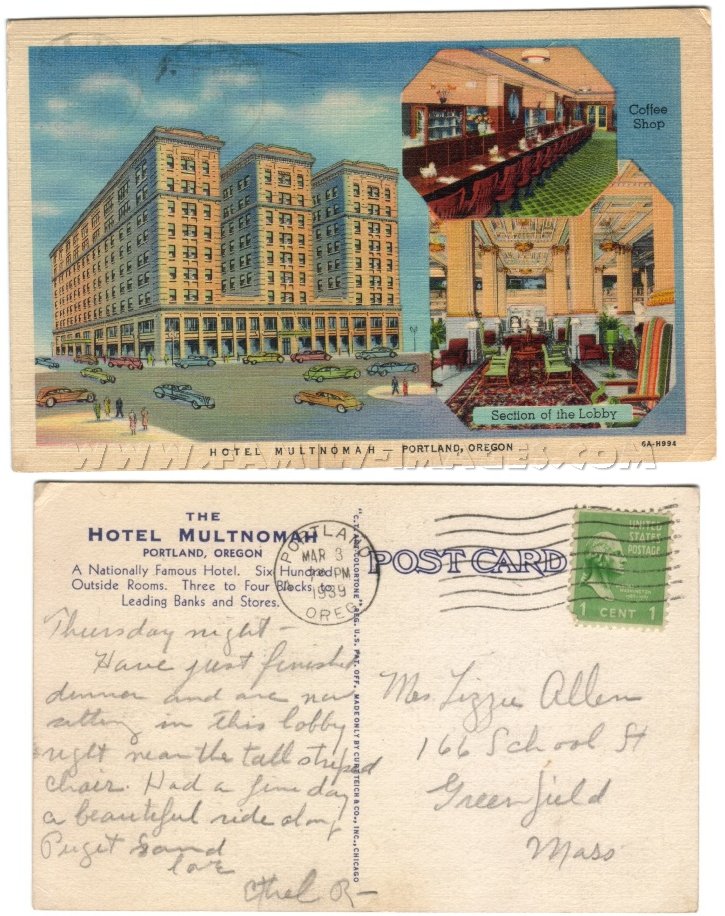 Coffee
Shop
Section of the Lobby
HOTEL MULTNOMAH PORTLAND, OREGON
6A-H994
WWW.FAMILY-IMAGES.COM
THE
HOTEL MULTNOMAH
PORTLAND, OREGON
A Nationally Famous Hotel. Six Hundred
Outside Rooms. Three to Four Blocks to
Leading Banks and Stores.
PORTLAND
MAR 3
PM
1939
OREG
POST CARD
UNITED
STATES
POSTAGE
WASHINGTON
1 CENT 1
"C.T. ART-COLORTONE" REG. U.S. PAT. OFF. MADE ONLY BY CURT TEICH & CO., INC., CHICAGO
Thursday night -
Have just finished
dinner and are now
sitting in this lobby
right near the tall striped
chair. Had a fine day
a beautiful ride along
Puget Sound
love
Ethel R-
Mrs. Lizzie Allen
166 School St
Greenfield
Mass